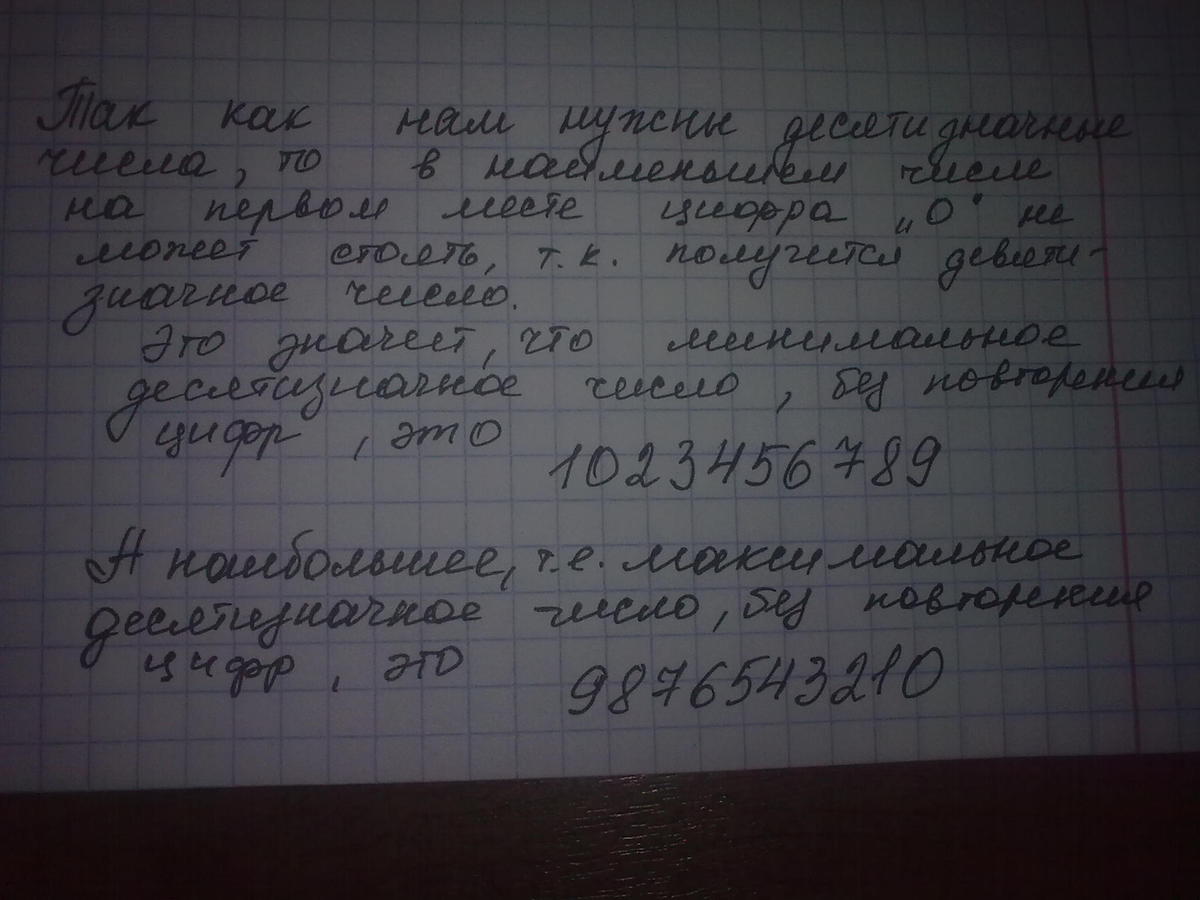 Так как нам нужны десятизначные
числа, то в наименьшем числе
на первом месте цифра „0" не
может стоять, т.к. получится девяти-
значное число.
Это значит, что минимальное
десятизначное число, без повторения
цифр, это 1023456789
А наибольшее, т.е. максимальное
десятизначное число, без повторения
цифр, это 9876543210